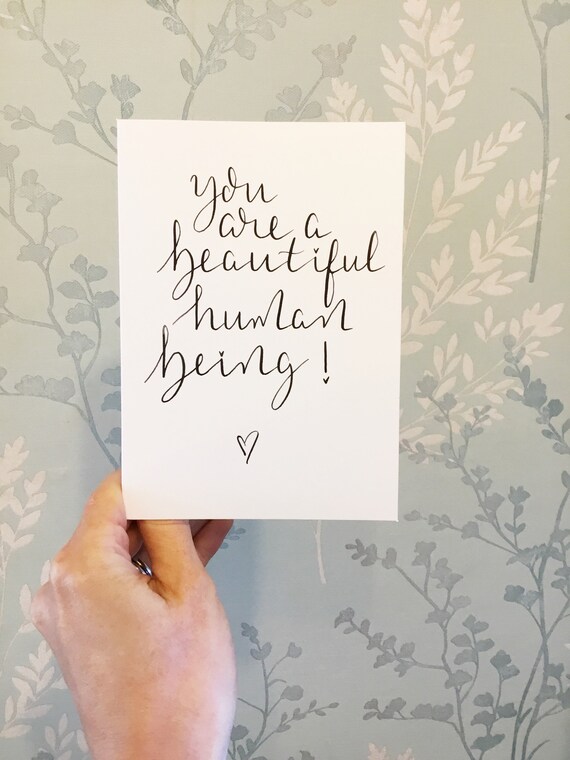 you
are a
beautiful
human
being!